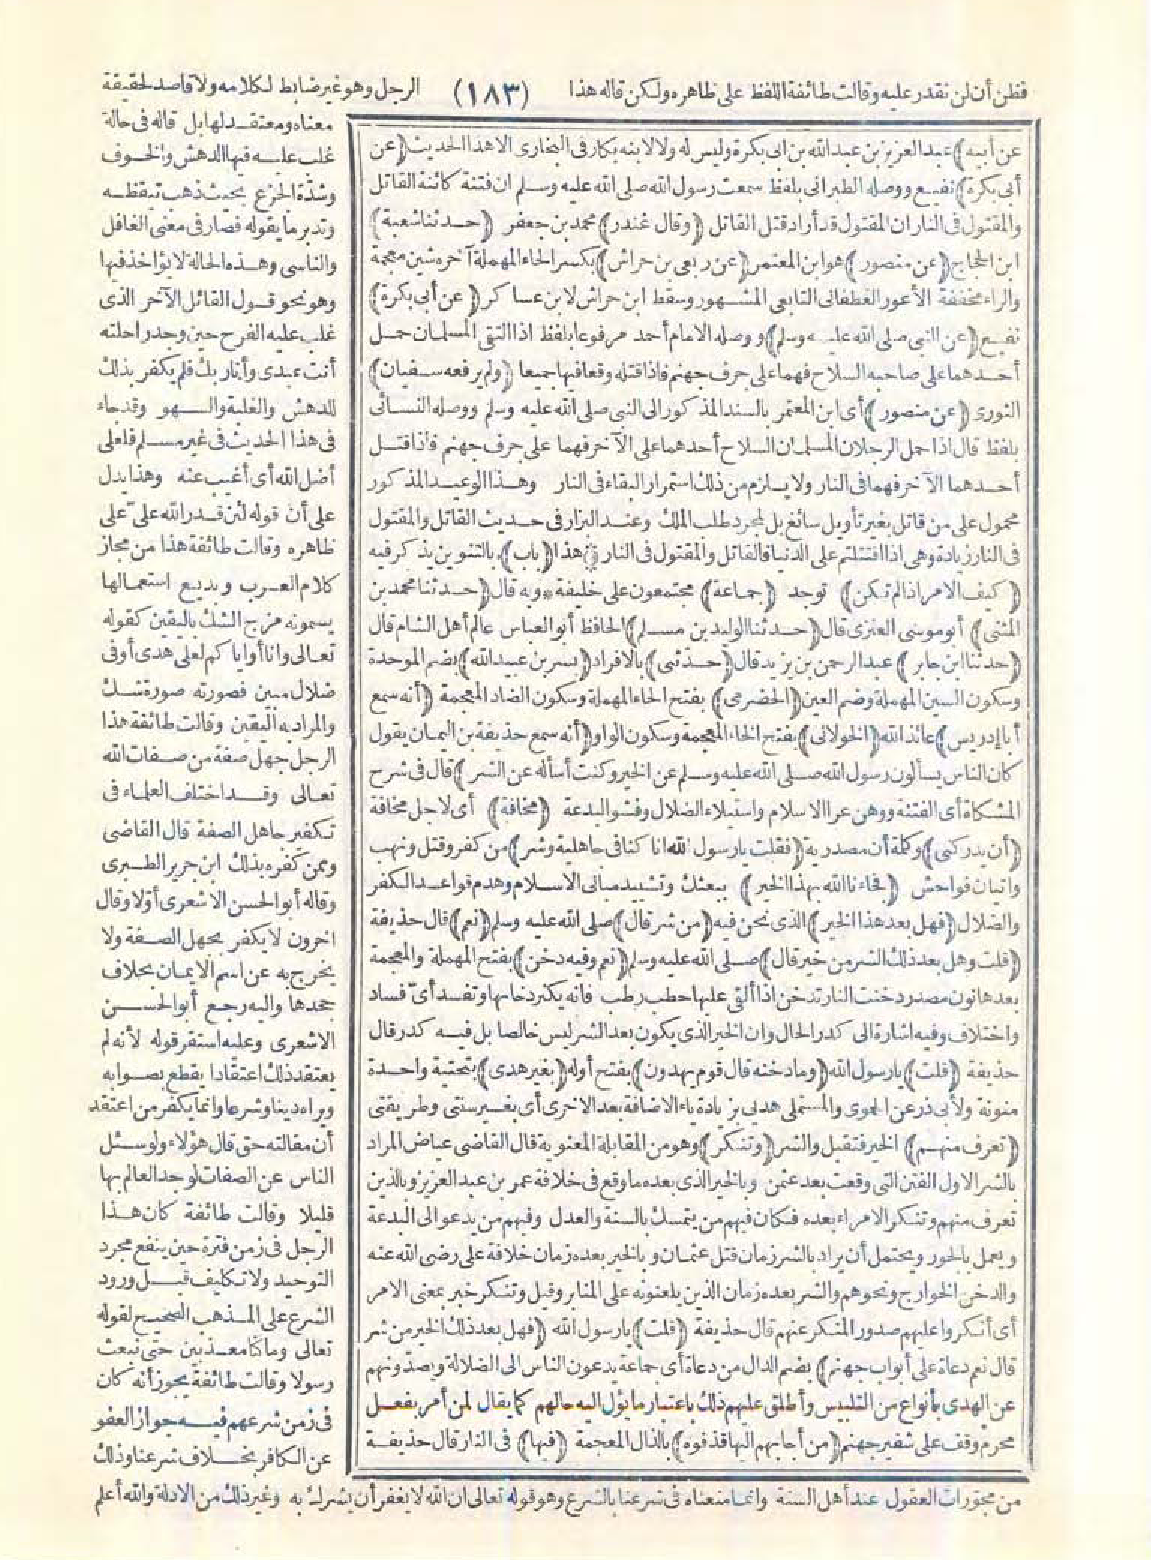 فظن أن لن نقدر عليه وقالت طائفة اللفظ على ظاهره ولكن قاله هذا
(١٨٣)
الرجل وهو غير ضابط لكلامه ولا قاصد لحقيقة
معناه ومعتقد لها بل قاله فى حالة
غلب عليه فيها الدهش والخوف
وشدة الجزع بحيث ذهب تيقظه
وتدبر ما يقوله فصار فى معنى الغافل
والناسى وهذه الحالة لا يؤاخذ فيها
وهو نحو قول القائل الآخر الذى
غلب عليه الفرح حين وجد راحلته
أنت عبدى وأنا ربك فلم يكفر بذلك
للدهش والغلبة والسهو وقد جاء
فى هذا الحديث فى غير مسلم فلعلى
أضل الله أى أغيب عنه وهذا يدل
على أن قوله لئن قدر الله على على
ظاهره وقالت طائفة هذا من مجاز
كلام العرب وبديع استعمالها
يسمونه مزج الشك باليقين كقوله
تعالى وانا أو اياكم لعلى هدى أو فى
ضلال مبين فصورته صورة شك
والمراد به اليقين وقالت طائفة هذا
الرجل جهل صفة من صفات الله
تعالى وقد اختلف العلماء فى
تكفير جاهل الصفة قال القاضى
وممن كفره بذلك ابن جرير الطبرى
وقاله أبو الحسن الاشعرى أولا وقال
آخرون لا يكفر بجهل الصفة ولا
يخرج به عن اسم الايمان بخلاف
جحدها واليه رجع أبو الحسن
الاشعرى وعليه استقر قوله لأنه لم
يعتقد ذلك اعتقادا يقطع بصوابه
ويراه دينا وشرعا وانما يكفر من اعتقد
أن مقالته حق قال هؤلاء ولو سئل
الناس عن الصفات لوجد العالم بها
قليلا وقالت طائفة كان هذا
الرجل فى زمن فترة حين ينفع مجرد
التوحيد ولا تكليف قبل ورود
الشرع على المذهب الصحيح لقوله
تعالى وما كنا معذبين حتى نبعث
رسولا وقالت طائفة يجوز أنه كان
فى زمن شرعهم فيه جواز العفو
عن الكافر بخلاف شرعنا وذلك
عن أبيه) عبد العزيز بن عبد الله بن ابى بكرة وليس له ولا لابنه بكار فى البخارى الا هذا الحديث (عن
أبى بكرة) نفيع ووصله الطبرانى بلفظ سمعت رسول الله صلى الله عليه وسلم ان فتنة كائنة القاتل
والمقتول فى النار ان المقتول قد أراد قتل القاتل (وقال غندر) محمد بن جعفر (حدثنا شعبة)
ابن الحجاج (عن منصور) هو ابن المعتمر (عن ربعى بن حراش) بكسر الحاء المهملة آخره شين معجمة
والراء مخففة الأعور الغطفانى التابعى المشهور وسقط ابن حراش لابن عساكر (عن أبى بكرة)
نفيع (عن النبى صلى الله عليه وسلم) ووصله الامام أحمد مرفوعا بلفظ اذا التقى المسلمان حمل
أحدهما على صاحبه السلاح فهما على جرف جهنم فاذا قتله وقعا فيها جميعا (ولم يرفعه سفيان)
الثورى (عن منصور) أى ابن المعتمر بالسند المذكور الى النبى صلى الله عليه وسلم ووصله النسائى
بلفظ قال اذا حمل الرجلان المسلمان السلاح أحدهما على الآخر فهما على جرف جهنم فاذا قتل
أحدهما الآخر فهما فى النار ولا يلزم من ذلك استمرار البقاء فى النار وهذا الوعيد المذكور
محمول على من قاتل بغير تأويل سائغ بل لمجرد طلب الملك وعند البزار فى حديث القاتل والمقتول
فى النار زيادة وهى اذا اقتتلتم على الدنيا فالقاتل والمقتول فى النار ﴿ هذا (باب) بالتنوين يذكر فيه
(كيف الامر اذا لم تكن) توجد (جماعة) مجتمعون على خليفة * وبه قال (حدثنا محمد بن
المثنى) أبو موسى العنزى قال (حدثنا الوليد بن مسلم) الحافظ أبو العباس عالم أهل الشام قال
(حدثنا ابن جابر) عبد الرحمن بن يزيد قال (حدثنى) بالافراد (بسر بن عبيد الله) بضم الموحدة
وسكون السين المهملة وضم العين (الحضرمى) بفتح الحاء المهملة وسكون الضاد المعجمة (أنه سمع
أبا إدريس) عائذ الله (الخولانى) بفتح الخاء المعجمة وسكون الواو (أنه سمع حذيفة بن اليمان يقول
كان الناس يسألون رسول الله صلى الله عليه وسلم عن الخير وكنت أسأله عن الشر) قال فى شرح
المشكاة أى الفتنة ووهن عرا الاسلام واستيلاء الضلال وفشو البدعة (مخافة) أى لاجل مخافة
(أن يدركنى) وكلمة أن مصدرية (فقلت يارسول الله انا كنا فى جاهلية وشر) من كفر وقتل ونهب
واتيان فواحش (فجاءنا الله بهذا الخير) ببعثك وتشييد مبانى الاسلام وهدم قواعد الكفر
والضلال (فهل بعد هذا الخير) الذى نحن فيه (من شر قال) صلى الله عليه وسلم (نعم) قال حذيفة
(قلت وهل بعد ذلك الشر من خير قال) صلى الله عليه وسلم (نعم وفيه دخن) بفتح المهملة والمعجمة
بعدها نون مصدر دخنت النار تدخن اذا ألقى عليها حطب رطب فانه يكثر دخانها وتفسد أى فساد
واختلاف وفيه اشارة الى كدر الحال وان الخير الذى يكون بعد الشر ليس خالصا بل فيه كدر قال
حذيفة (قلت) يارسول الله (وما دخنه قال قوم يهدون) بفتح أوله (بغير هدى) بتحتية واحدة
منونة ولأبى ذر عن الحموى والمستملى هديى بزيادة ياء الاضافة بعد الاخرى أى بغير سنتى وطريقتى
(تعرف منهم) الخير فتقبل والشر (وتنكر) وهو من المقابلة المعنوية قال القاضى عياض المراد
بالشر الاول الفتن التى وقعت بعد عثمن وبالخير الذى بعده ما وقع فى خلافة عمر بن عبد العزيز وبالذين
تعرف منهم وتنكر الامراء بعده فكان فيهم من يتمسك بالسنة والعدل وفيهم من يدعو الى البدعة
ويعمل بالجور ويحتمل أن يراد بالشر زمان قتل عثمان وبالخير بعده زمان خلافة على رضى الله عنه
والدخن الخوارج ونحوهم والشر بعده زمان الذين يلعنونه على المنابر وقيل وتنكر خبر بمعنى الامر
أى أنكروا عليهم صدور المنكر عنهم قال حذيفة (قلت) يارسول الله (فهل بعد ذلك الخير من شر
قال نعم دعاة على أبواب جهنم) بضم الدال من دعاة أى جماعة يدعون الناس الى الضلالة ويصدونهم
عن الهدى بأنواع من التلبيس وأطلق عليهم ذلك باعتبار ما يؤل اليه حالهم كما يقال لمن أمر بفعل
محرم وقف على شفير جهنم (من أجابهم اليها قذفوه) بالذال المعجمة (فيها) فى النار قال حذيفة
من مجوزات العقول عند أهل السنة وانما منعناه فى شرعنا بالشرع وهو قوله تعالى ان الله لا يغفر أن يشرك به وغير ذلك من الادلة والله أعلم